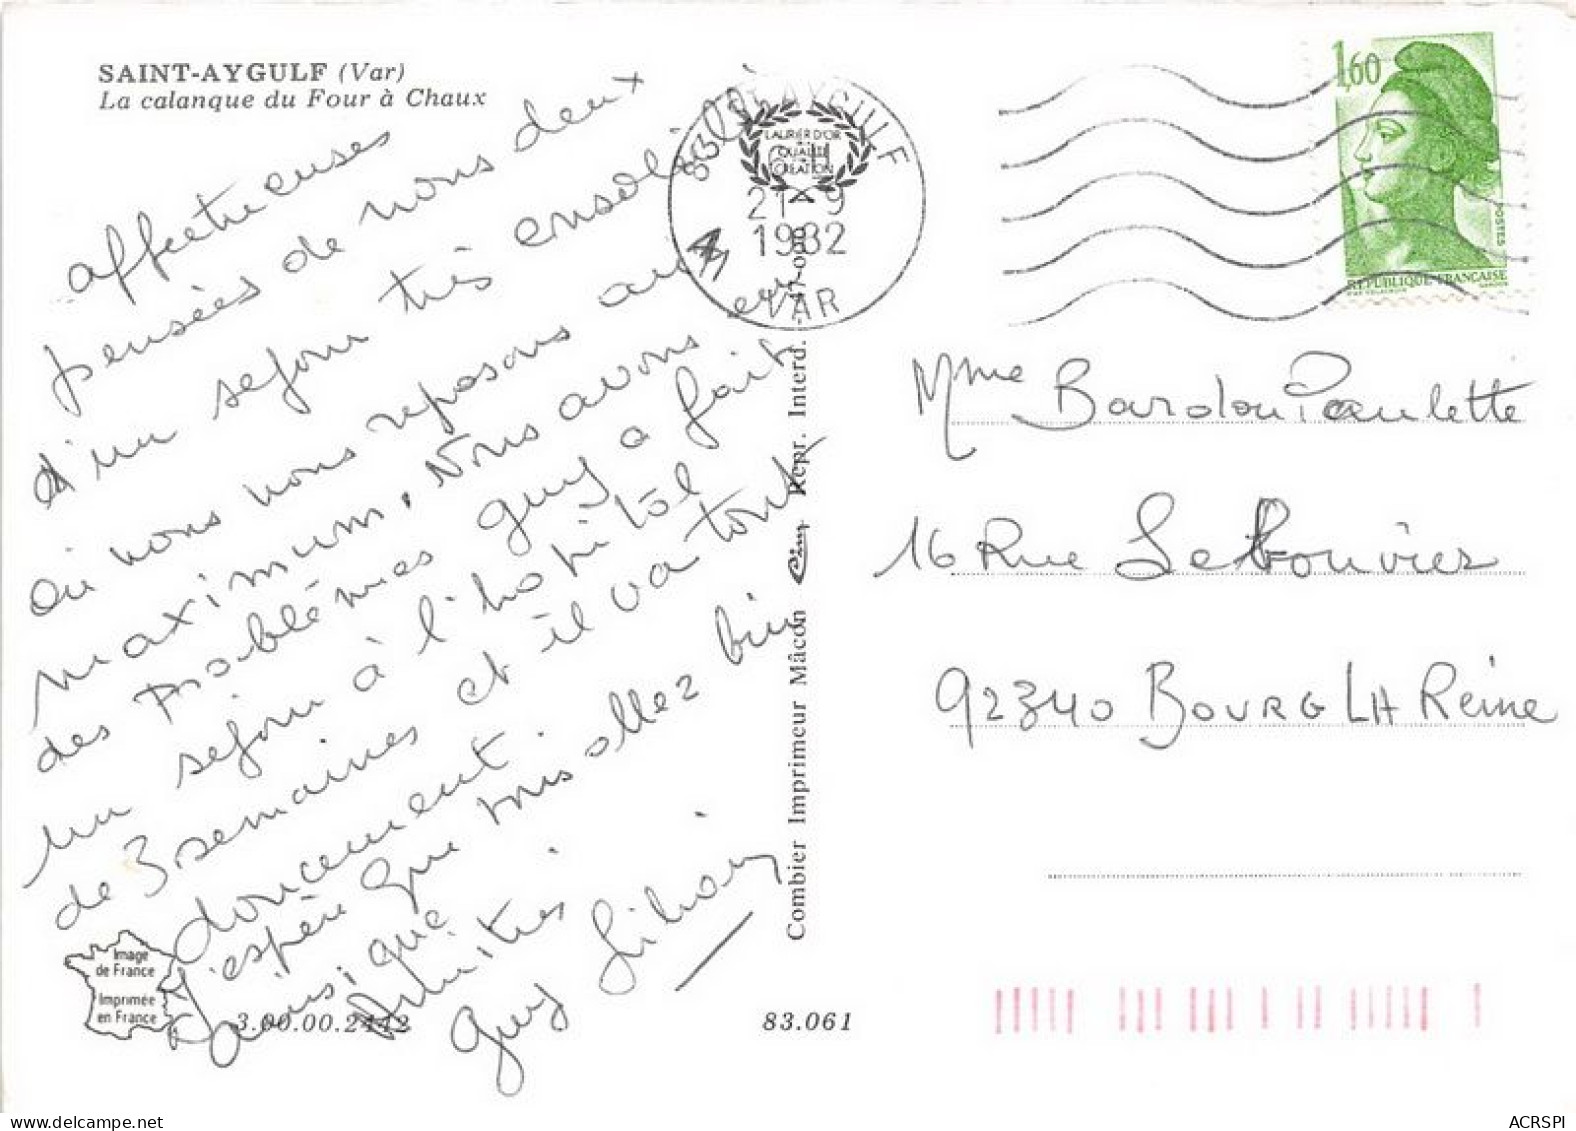 SAINT-AYGULF (Var)
La calanque du Four à Chaux
affectueuses
pensées de nous deux
d'un sejour très ensoleillé
où nous nous reposons au
maximum. Nous avons eu
des problèmes guy a fait
un sejour à l'hopitâl
de 3 semaines et il va tout
doucement.
J'espère que vous allez bien
ainsi que
Amitiés.
Guy
83 ST AYGULF
LAURIER D'OR
QUALITE
CREATION
21-9
1982
VAR
Combier Imprimeur Mâcon Cim Repr. Interd.
1,60
POSTES
REPUBLIQUE FRANÇAISE
Mme Bardou Paulette
16 Rue
92340 BOURG LA Reine
Image
de France
Imprimée
en France
3.00.00.2442
83.061
ACRSPI